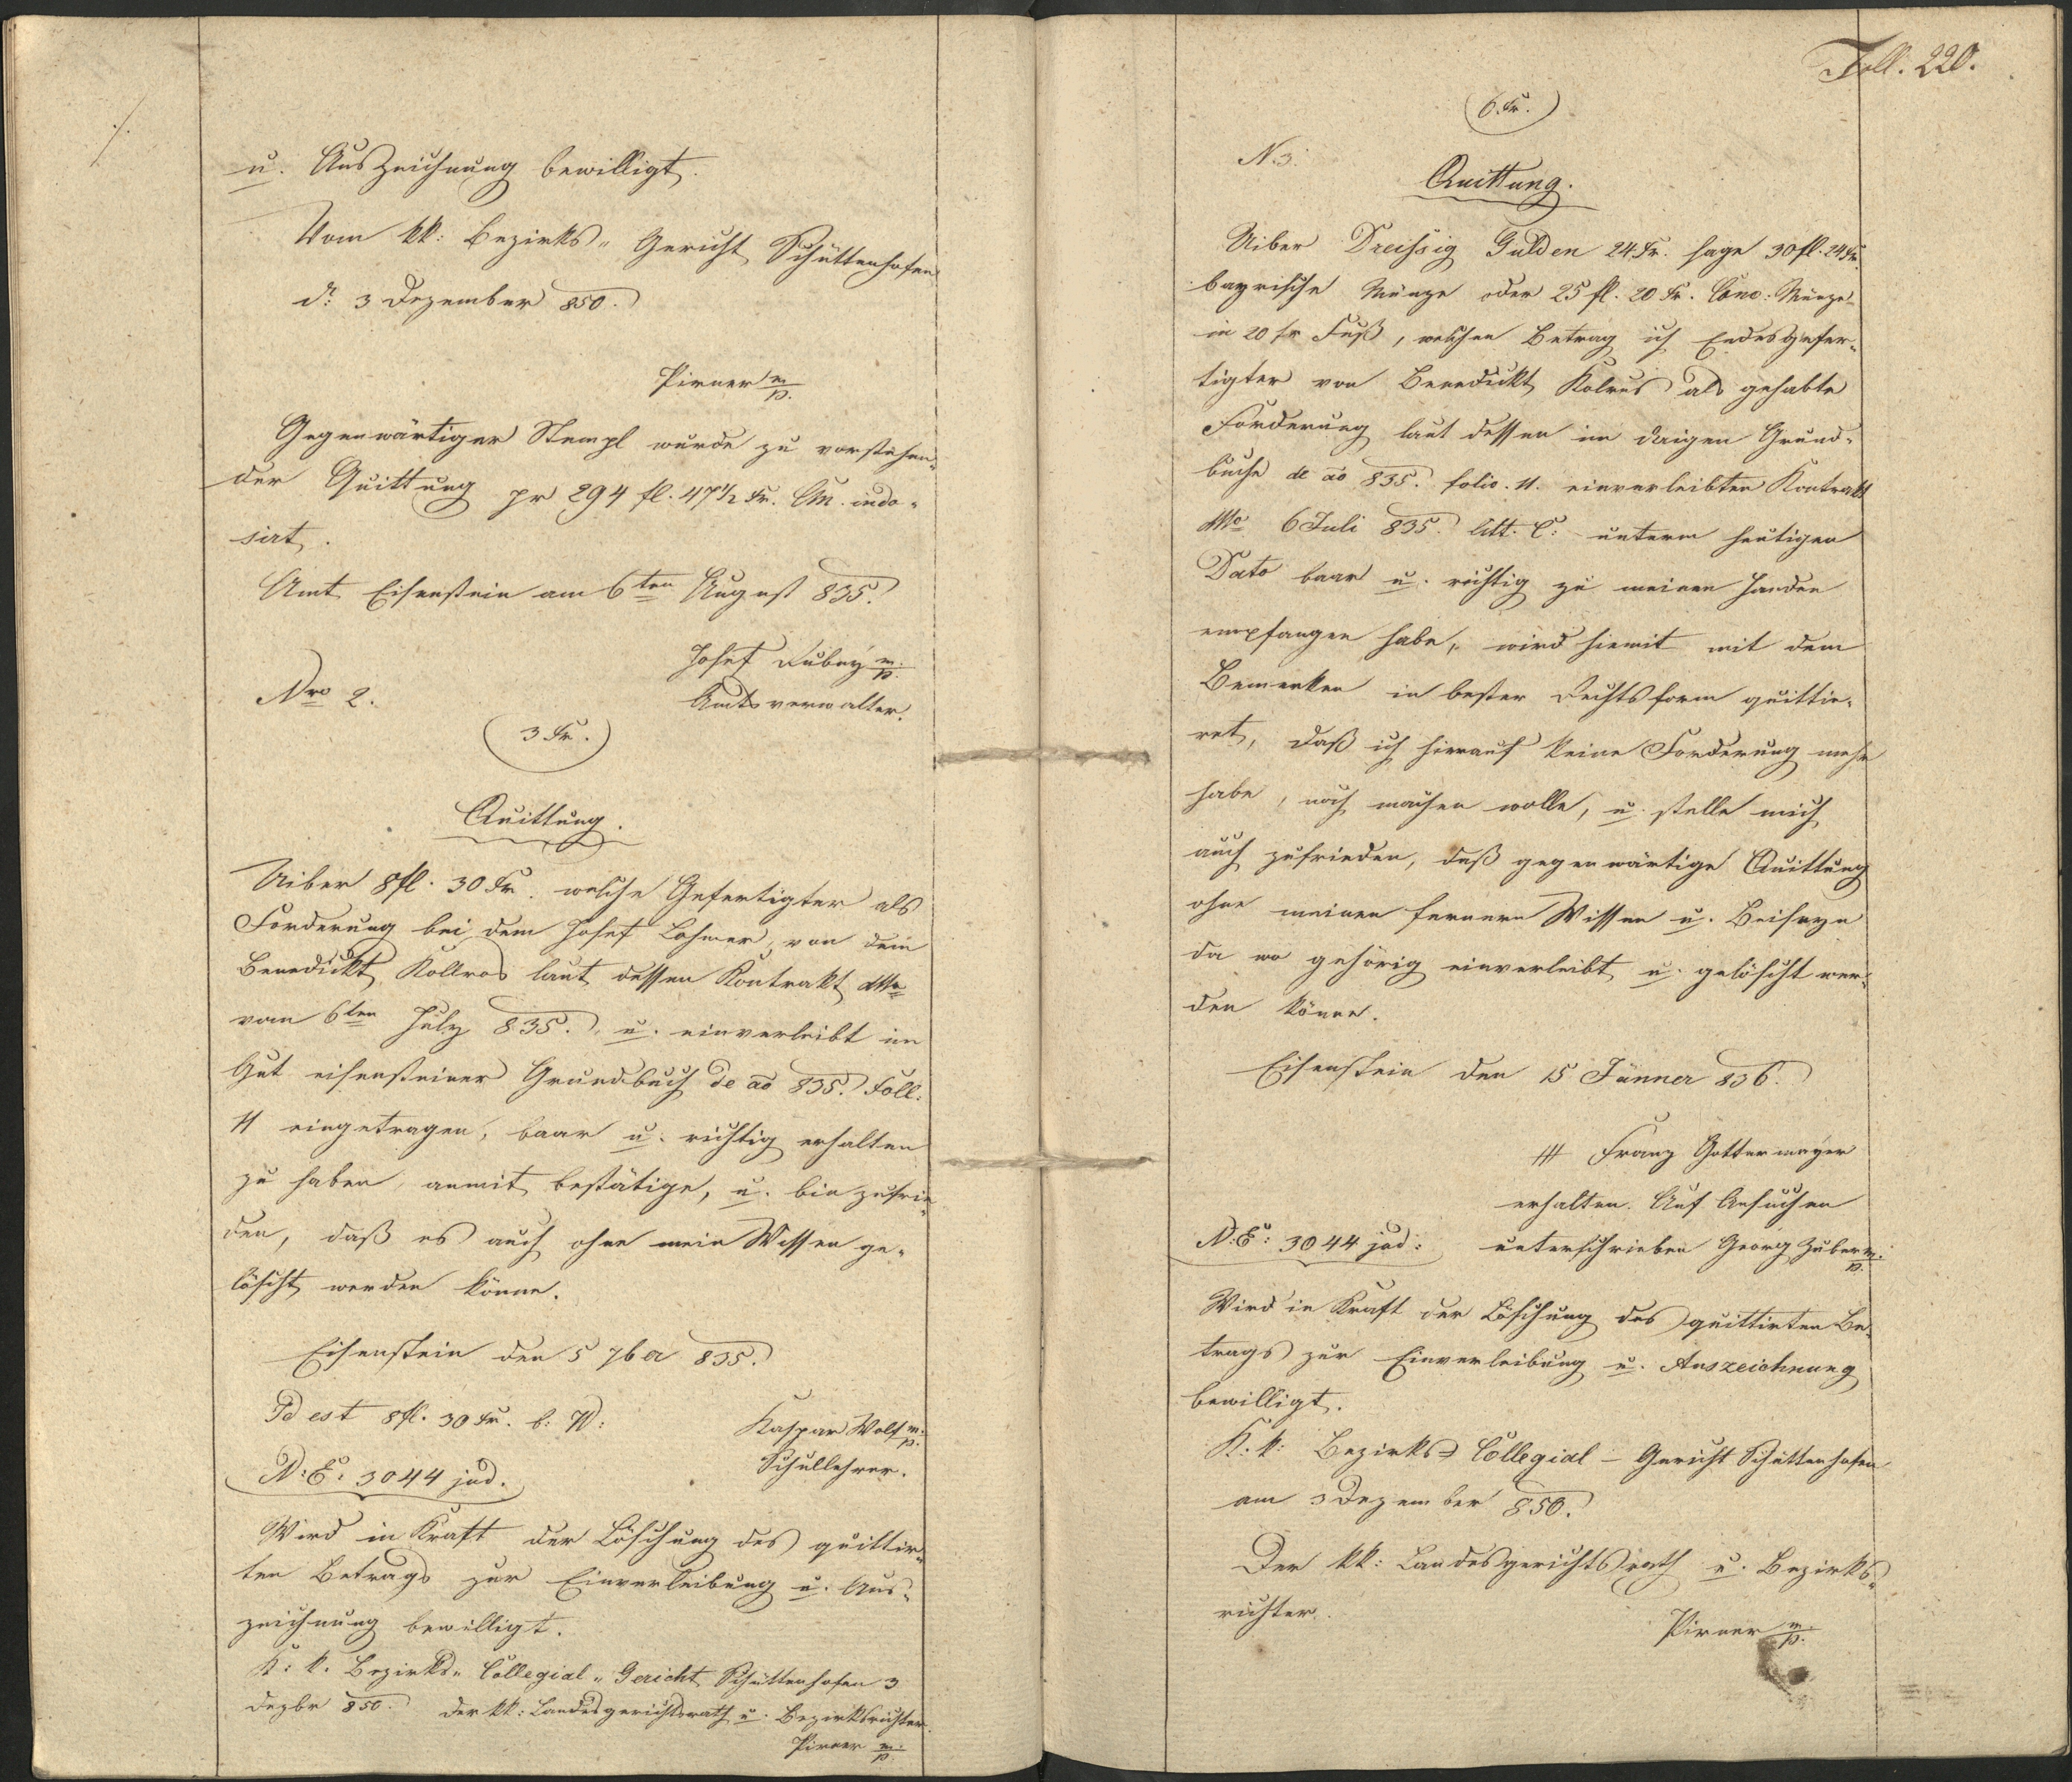 u. Auszeichnung bewilligt.
Vom kk: Bezirks„ Gericht Schüttenhofen
dt: 3 Dezember 850.
Pirner m/p.
Gegenwärtiger Stempl wurde zu vorstehen„
der Quittung pr 294 fl. 47 1/2 Kr. CM. indo„
sirt.
Amt Eisenstein am 6ten August 835.
Josef Dubny m/p.
Amtsverwalter.
Nro 2.
3 Kr.
Quittung.
Uiber 8 fl. 30 Kr. welche Gefertigter als
Forderung bei dem Josef Lohmer, von dem
Benedickt Kollros laut dessen Kontrakt dtto
vom 6ten July 835. u. einverleibt im
Gut eisensteiner Grundbuch de ao 835. Foll:
11 eingetragen, baar u. richtig erhalten
zu haben anmit bestätige, u. bin zufrie„
den, daß es auch ohne mein Wissen ge„
löscht werden könne.
Eisenstein den 5 7ber 835.
Id est 8 fl. 30 Kr. b: W:
Kaspar Wolf m/p.
Schullehrer.
N: E: 3044 jud.
Wird in Kraft der Löschung des quittir„
ten Betrags zur Einverleibung u. Aus„
zeichnung bewilligt.
K: k: Bezirks„ Collegial „ Gericht Schüttenhofen 3
Dezbr 850. Der kk: Landesgerichtsrath u. Bezirksrichter.
Pirner m/p.
Foll. 220.
6 Kr.
N. 3.
Quittung.
Uiber Dreißig Gulden 24 Kr. sage 30 fl. 24 Kr.
bayrische Münze oder 25 fl. 20 Kr. Conv: Münze
in 20 fr Fuß, welchen Betrag ich Endesgefer„
tigter von Benedickt Kolros als gehabte
Forderung laut dessen im daigen Grund„
buche de ao 835. folio. 11. einverleibten Kontrakt
dtto 6 Juli 835. litt. C: unterm heutigen
Dato baar u. richtig zu meinen Handen
empfangen habe, wird hiemit mit dem
Bemerken in bester Rechtsform quittie„
ret, daß ich hierauf keine Forderung mehr
habe, noch machen wolle, u. stelle mich
auch zufrieden, daß gegenwärtige Quittung
ohne meinen fernern Wissen u. Beiseyn
da wo gehörig einverleibt u. gelöscht wer„
den könne.
Eisenstein den 15 Jänner 836.
+++ Franz Gottermayer
erhalten. Auf Ansuchen
N: E: 3044 jud: unterschrieben Georg Zuber m/p.
Wird in Kraft der Löschung des quittirten Be„
trags zur Einverleibung u. Auszeichnung
bewilligt.
K: k: Bezirks= Collegial – Gericht Schüttenhofen
am 3 Dezember 850.
Der kk: Landesgerichtsrath u. Bezirks„
richter.
Pirner m/p.